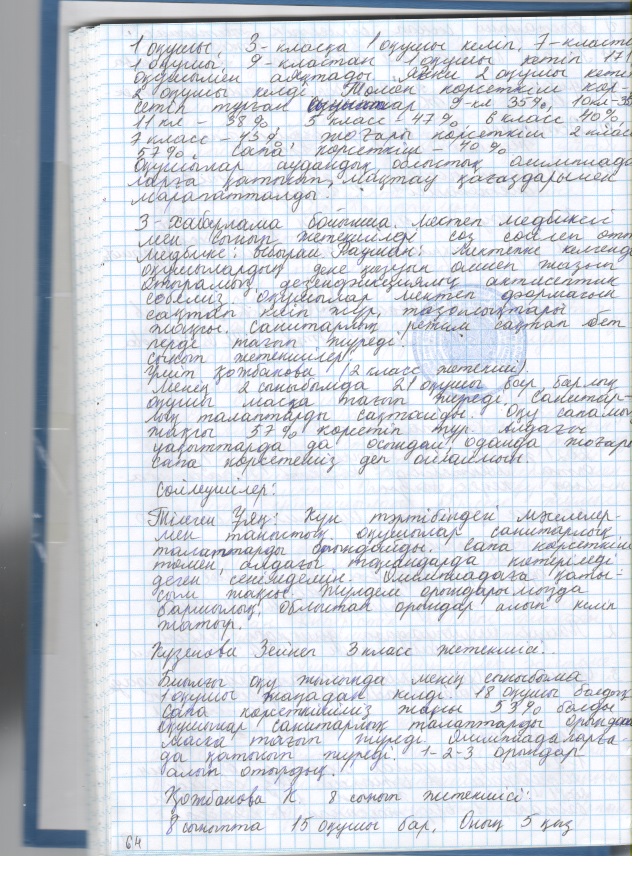 1 оқушы, 3-класқа 1 оқушы келіп, 7-кластан
1 оқушы, 9-кластан 1 оқушы кетіп 171
оқушымен аяқтады. Яғни 2 оқушы кетіп
2 оқушы келді. Төмен көрсеткіш көр-
сетіп тұрған сыныптар 9-кл 35%, 10кл-35
11 кл - 38% 5 класс - 47% 6 класс 40%,
7 класс - 43%, жоғары көрсеткіш 2 класс
57%. Сапа көрсеткіш - 40%
Оқушылар аудандық облыстық олимпиада-
ларға қатысып, мақтау қағаздарымен
марапатталды.
3-Хабарлама бойынша мектеп медбикесі
мен сынып жетекшілері сөз сөйлеп өтті
Медбике: Ыбырай Раушан: мектепке келгенде
оқушылардың дене қызуын өлшеп жазып
отырамыз, дезенфекциялық антисептик
себеміз. оқушылар мектеп формасын
сақтап киіп жүр, тазалықтары
жақсы. Санитарлық режим сақтап бет
перде тағып жүреді.
Сынып жетекшілері:
Үміт Қожбанова (2 класс жетекшісі)
Менің 2 сыныбымда 21 оқушы бар, барлық
оқушы маска тағып жүреді. Санитар-
лық талаптарды сақтайды. Оқу сапамыз
жақсы 57% көрсетіп тұр. алдағы
уақыттарда да осындай одан да жоғары
сапа көрсетеміз деп ойлаймын.
Сөйлеушілер:
Тілеген Ұяң: Күн тәртібіндегі мәселелер-
мен таныстық, оқушылар санитарлық
талаптарды орындайды. Сапа көрсеткіш
төмен, алдағы тоқсандарда көтеріледі
деген сенімдемін. Олимпиадаға қаты-
сып жақсы жүлделі орындарымызда
баршылық. облыстан орындар алып келіп
жатыр.
Кузенова Зейнеп 3 класс жетекшісі.
Биылғы оқу жылында менің сыныбыма
1 оқушы жаңадан келді. 18 оқушы болдық
сапа көрсеткішіміз жақсы 53% болды
оқушылар санитарлық талаптарды орындайды
маска тағып жүреді. Олимпиадаларға-
да қатысып жүреді. 1-2-3 орындар
алып отырдық.
Қожбанова К. 8 сынып жетекшісі
8 сыныпта 15 оқушы бар, Оның 5 қыз
64